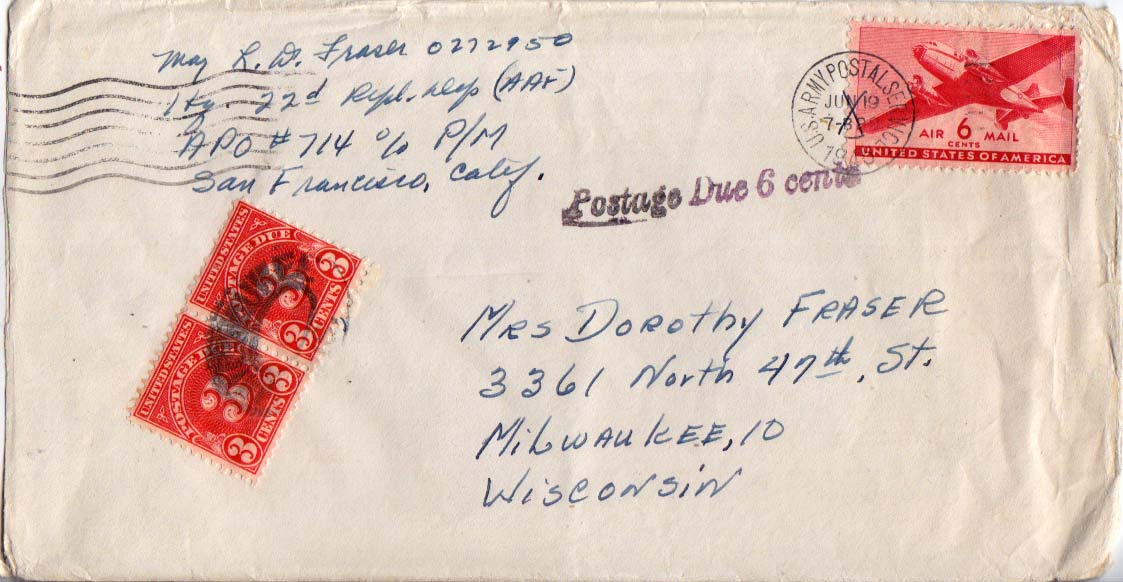 Maj R. D. Fraser 0272950
22d Repl. Dep (AAF)
APO # 714 c/o P/M
San Francisco, Calif.
U.S. ARMY POSTAL SERVICE
JUN 19
AIR 6 MAIL
CENTS
UNITED STATES OF AMERICA
Postage Due 6 cents
UNITED STATES
POSTAGE DUE
3 3 3
CENTS
UNITED STATES
POSTAGE DUE
3 3 3
CENTS
Mrs Dorothy FRASER
3361 North 47th. St.
Milwaukee, 10
Wisconsin